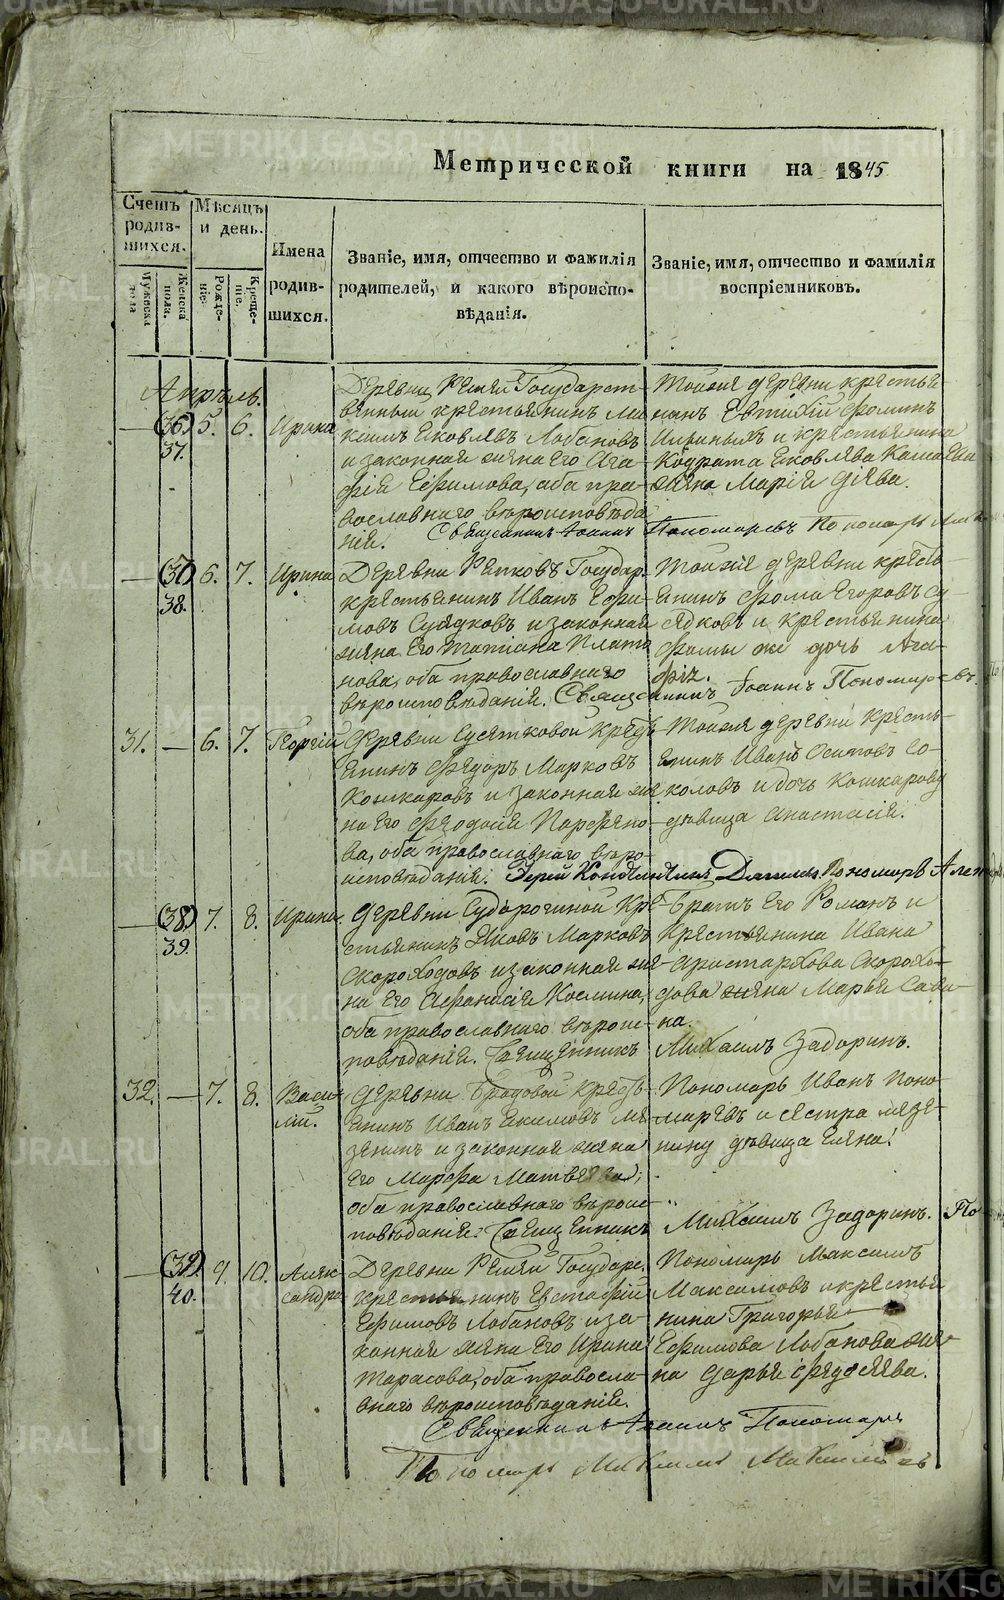 METRIKI.GASO-URAL.RU
Метрической книги на 1845
Счетъ родив-шихся.
Мужеска пола.
Женска пола.
Мѣсяцъ и день.
Рожде-ніе.
Креще-ніе.
Имена родив-шихся.
Званіе, имя, отчество и фамилія родителей, и какого вѣроиспо-вѣданія.
Званіе, имя, отчество и фамилія воспріемниковъ.
Апрѣль.
— (36) 37. 5. 6. Ирина
Деревни Государст-
венный крестьянинъ Ма-
ксимъ Яковлевъ Лобановъ
и законная жена его Ага-
фія Ефимова, оба пра-
вославнаго вѣроисповѣда
нія.
Тойже деревни крестья-
нинъ Евтихій Фоминъ
и крестьянина
Кодрата Яковлева
жена Марія
Священникъ Іоаннъ Пономаревъ Пономарь
— (37) 38. 6. 7. Ирина
Деревни Государ.
крестьянинъ Иванъ Ефи-
мовъ Суядковъ и законная
жена его Татіана Плато
нова, оба православнаго
вѣроисповѣданія.
Тойже деревни кресть-
янинъ Фома Егоровъ Су-
ядковъ и крестьянина
Фомы же дочь Ага-
фія.
Священникъ Іоаннъ Пономаревъ.
31. — 6. 7. Георгій
деревни Сусятковой кресть
янинъ Федоръ Марковъ
Кошкаровъ и законная же
на его Феодосія Парфено-
ва, оба православнаго вѣро-
исповѣданія.
Тойже деревни кресть-
янинъ Иванъ Осиповъ Со-
коловъ и дочь Кошкарову
дѣвица Анастасія.
Іерей Константинъ Пономарь Алек
— (38) 39. 7. 8. Ирина.
деревни Сударогиной кре-
стьянинъ Яковъ Марковъ
Скороходовъ и законная же-
на его Афанасія Космина,
оба православнаго вѣроис-
повѣданія. Священникъ
Братъ его Романъ и
крестьянина Ивана
Аристархова Скорохо-
дова жена Марья Сави-
на.
Михаилъ Задоринъ.
32. — 7. 8. Васи-
лій.
деревни Бродовой кресть-
янинъ Иванъ Екимовъ Ме-
зенинъ и законная жена
его Марфа Матвѣева,
оба православнаго вѣроис-
повѣданія. Священникъ
Пономарь Иванъ Поно-
маревъ и сестра мезе-
нину дѣвица Елена.
Михаилъ Задоринъ. По
— (39) 40. 9. 10. Алек
сандра
Деревни Государс.
крестьянинъ Евстафій
Ефимовъ Лобановъ и за-
конная жена его Ирина
Тарасова, оба правосла-
внаго вѣроисповѣданія.
Пономарь Максимъ
Максимовъ и крестья
нина Григорья
Ефимова Лобанова же-
на Дарья Федосеева.
Священникъ Іоаннъ Пономарев
Пономарь Максимъ Максимовъ